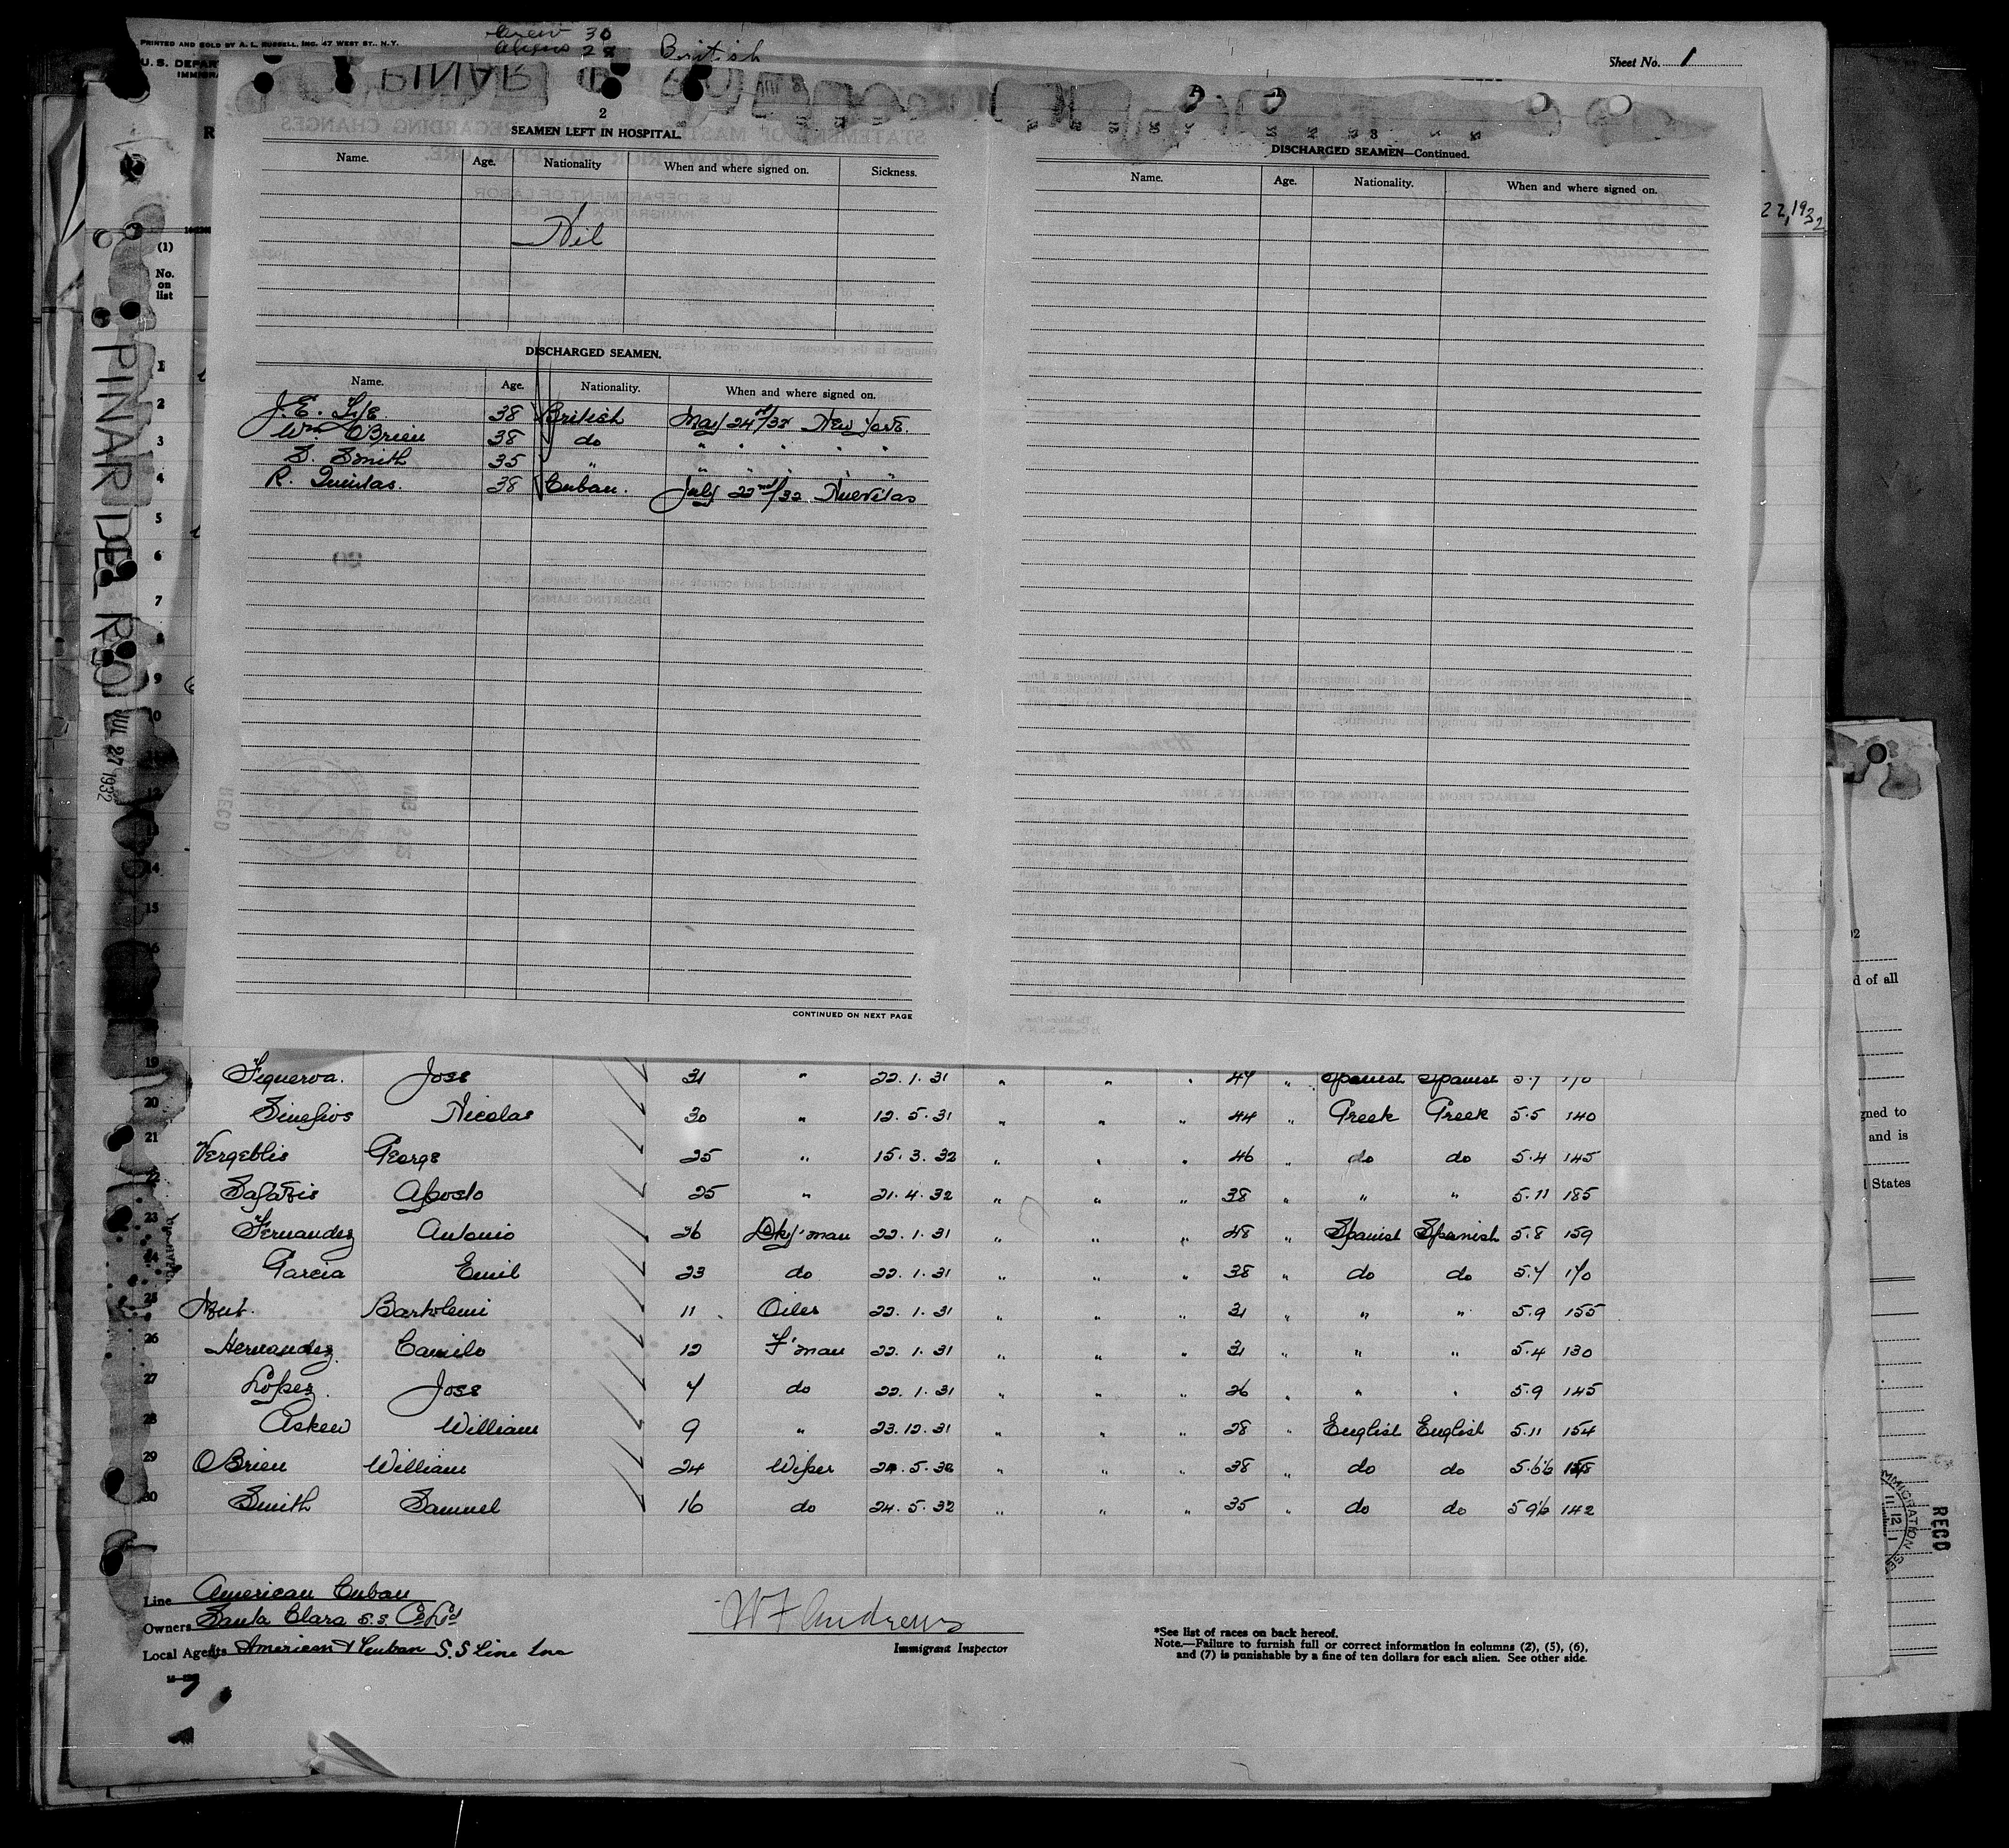 PRINTED AND SOLD BY A. L. RUSSELL, INC. 47 WEST ST., N.Y.
Crew 30
Aliens 28 British
Sheet No. 1
U. S. DEPAR
IMMIGRA
2
SEAMEN LEFT IN HOSPITAL.
Name. Age. Nationality When and where signed on. Sickness.
Nil
DISCHARGED SEAMEN.
Name. Age. Nationality. When and where signed on.
J. E. 38 British May 24th/32 New York.
Wm. O'Brien 38 do " " " "
S. Smith 35 " " " " "
R. Quintas. 38 Cuban. July 22nd/32 Nuevitas
CONTINUED ON NEXT PAGE
3
DISCHARGED SEAMEN—Continued.
Name. Age. Nationality. When and where signed on.
22, 1932
(1)
No. on list
PINAR DEL RIO JUL 27 1932
1
2
3
4
5
6
7
8
9
10
12
14
15
16
19 Figueroa. Jose 31 " 22. 1. 31 " " " 44 " Spanish Spanish 5.7 170
20 Nicolas 30 " 12. 5. 31 " " " 44 " Greek Greek 5.5 140
21 Vergeblis George 25 " 15. 3. 32 " " " 46 " do do 5.4 145
22 Apostolo 25 " 21. 4. 32 " " " 38 " " " 5.11 185
23 Fernandez Antonio 26 Dky'man 22. 1. 31 " " " 48 " Spanish Spanish 5.8 159
24 Garcia Emil 23 do 22. 1. 31 " " " 38 " do do 5.7 170
25 Bartolemi 11 Oiler 22. 1. 31 " " " 31 " " " 5.9 155
26 Hernandez Camilo 12 F'man 22. 1. 31 " " " 31 " " " 5.4 130
27 Lopez. Jose 7 do 22. 1. 31 " " " 26 " " " 5.9 145
28 Askew William 9 " 23. 12. 31 " " " 28 " English English 5.11 154
29 OBrien William 24 Wiper 24. 5. 32 " " " 38 " do do 5.6½ 158
30 Smith Samuel 16 do 24. 5. 32 " " " 35 " do do 5 9½ 142
Line American Cuban
Owners Santa Clara S.S. Co Ltd
Local Agents American & Cuban S.S Line Inc
W F Andrews
Immigrant Inspector
*See list of races on back hereof.
Note.—Failure to furnish full or correct information in columns (2), (5), (6),
and (7) is punishable by a fine of ten dollars for each alien. See other side.
d of all
gned to
and is
States
RECD